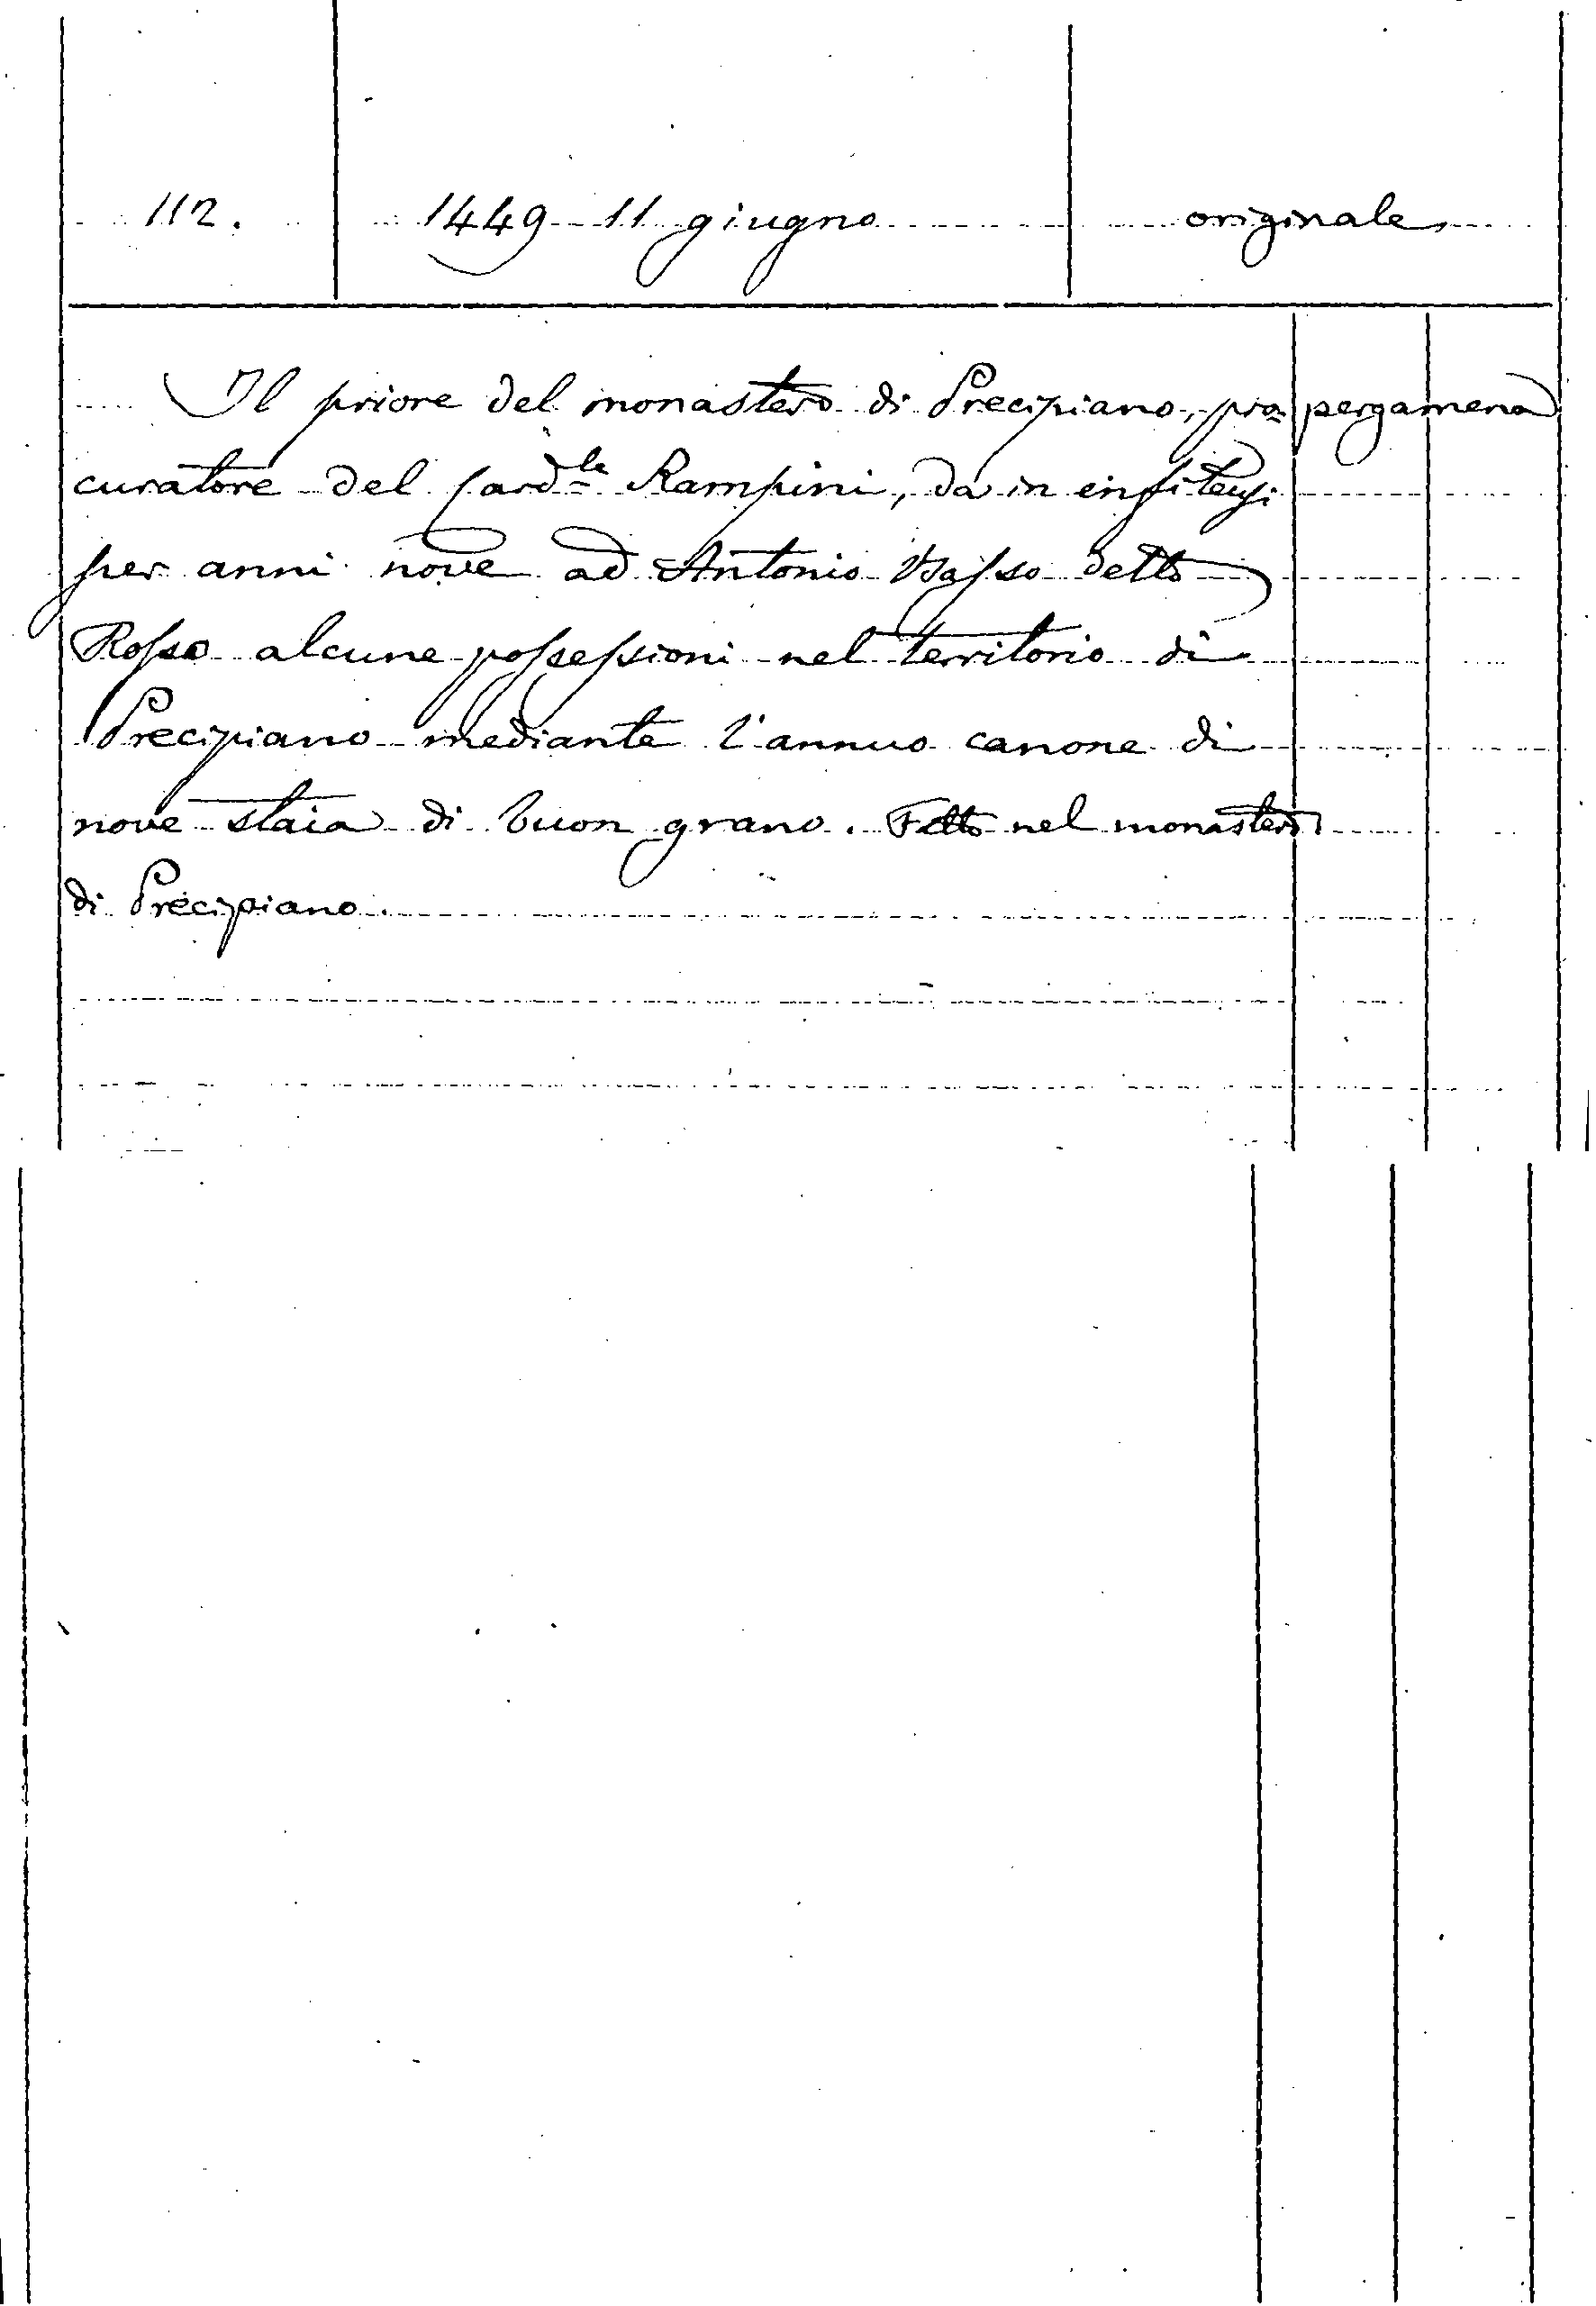 112. 1449 11 giugno originale
Il priore del monastero di Precipiano, pro= pergamena
curatore del Card.le Rampini, dà in enfiteusi
per anni nove ad Antonio Basso detto
Rosso alcune possessioni nel territorio di
Precipiano mediante l'annuo canone di
nove staia di buon grano. Fatto nel monastero
di Precipiano.